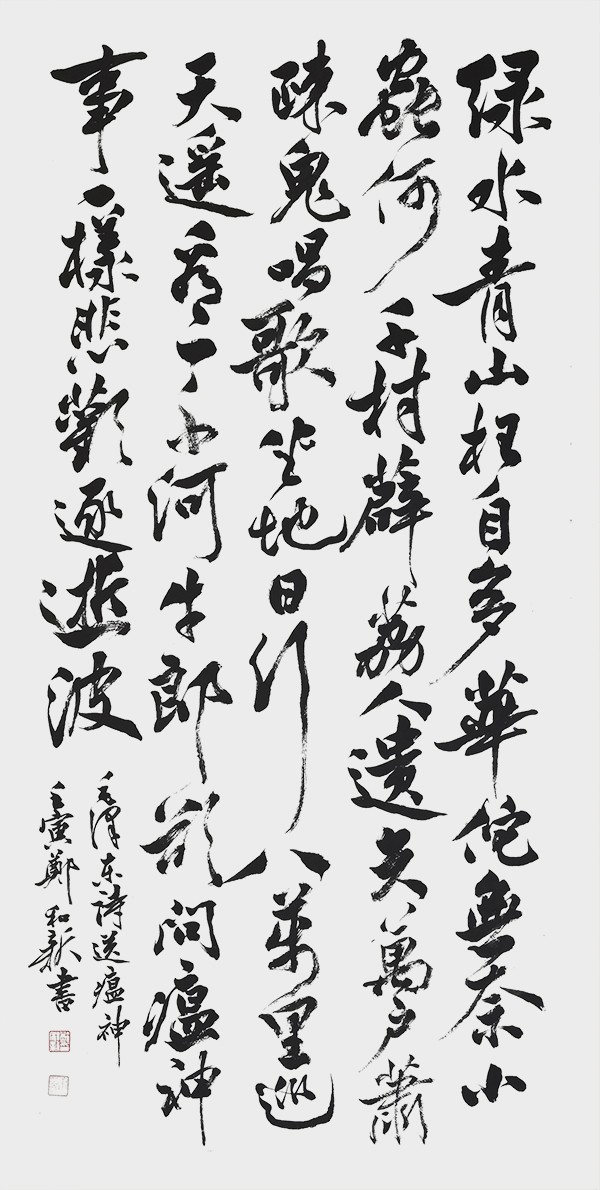 绿水青山枉自多華佗無奈小
蟲何千村薜荔人遺矢萬戶蕭
疎鬼唱歌坐地日行八萬里巡
天遥看一千河牛郎欲問瘟神
事一樣悲歡逐逝波
毛澤东詩送瘟神
壬寅鄭和新書